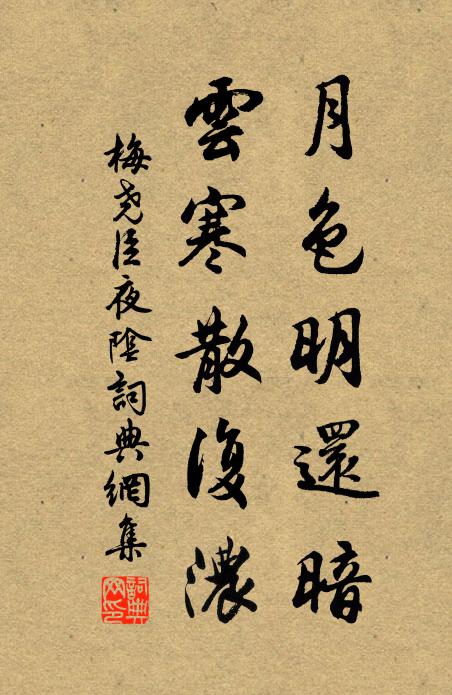 月色明還暗
雲寒散復濃
梅堯臣夜陰詞典網集
詞典網印